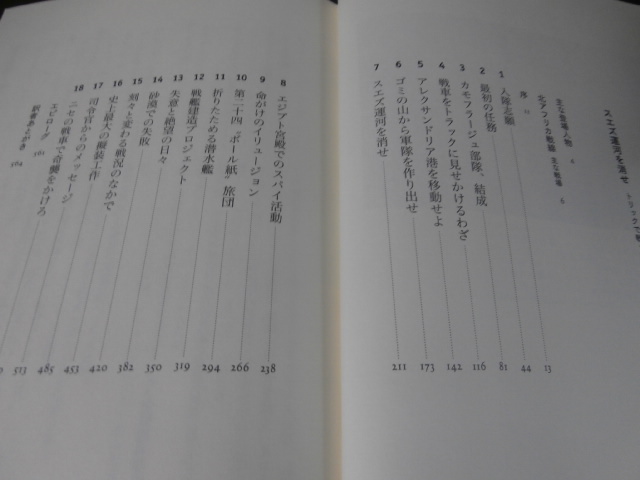 スエズ運河を消せ
トリックで
主な登場人物 4
北アフリカ戦線 主な戦場 6
序 13
1 入隊志願 44
2 最初の任務 81
3 "カモフラージュ部隊"結成 116
4 戦車をトラックに見せかけるわざ 142
5 アレクサンドリア港を移動せよ 173
6 ゴミの山から軍隊を作り出せ 211
7 スエズ運河を消せ
8 エジプト宮殿でのスパイ活動 238
9 命がけのイリュージョン 266
10 第二十四"ボール紙"旅団 294
11 折りたためる潜水艦 319
12 戦艦建造プロジェクト 350
13 失意と絶望の日々 382
14 砂漠での失敗 420
15 刻々と変わる戦況のなかで 453
16 史上最大の偽装工作 485
17 司令官からのメッセージ 513
18 ニセの戦車で奇襲をかけろ
エピローグ 561
訳者あとがき 564